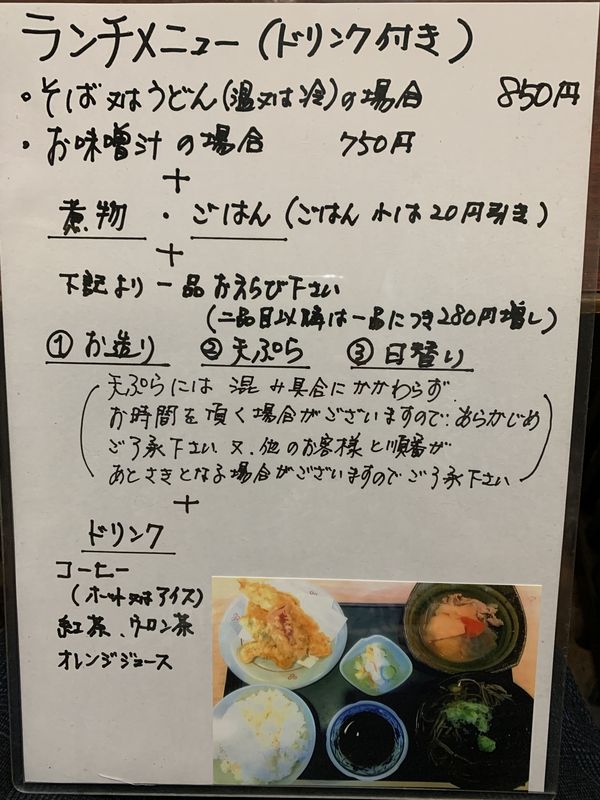 ランチメニュー(ドリンク付き)
・そば又はうどん(温又は冷)の場合 850円
・お味噌汁の場合 750円
+
煮物・ごはん(ごはん小は20円引き)
+
下記より一品おえらび下さい
(二品目以降は一品につき280円増し)
①お造り ②天ぷら ③日替り
(天ぷらには混み具合にかかわらず
お時間を頂く場合がございますので、あらかじめ
ご了承下さい 又、他のお客様と順番が
あとさきとなる場合がございますのでご了承下さい)
+
ドリンク
コーヒー
(ホット又はアイス)
紅茶、ウーロン茶
オレンジジュース